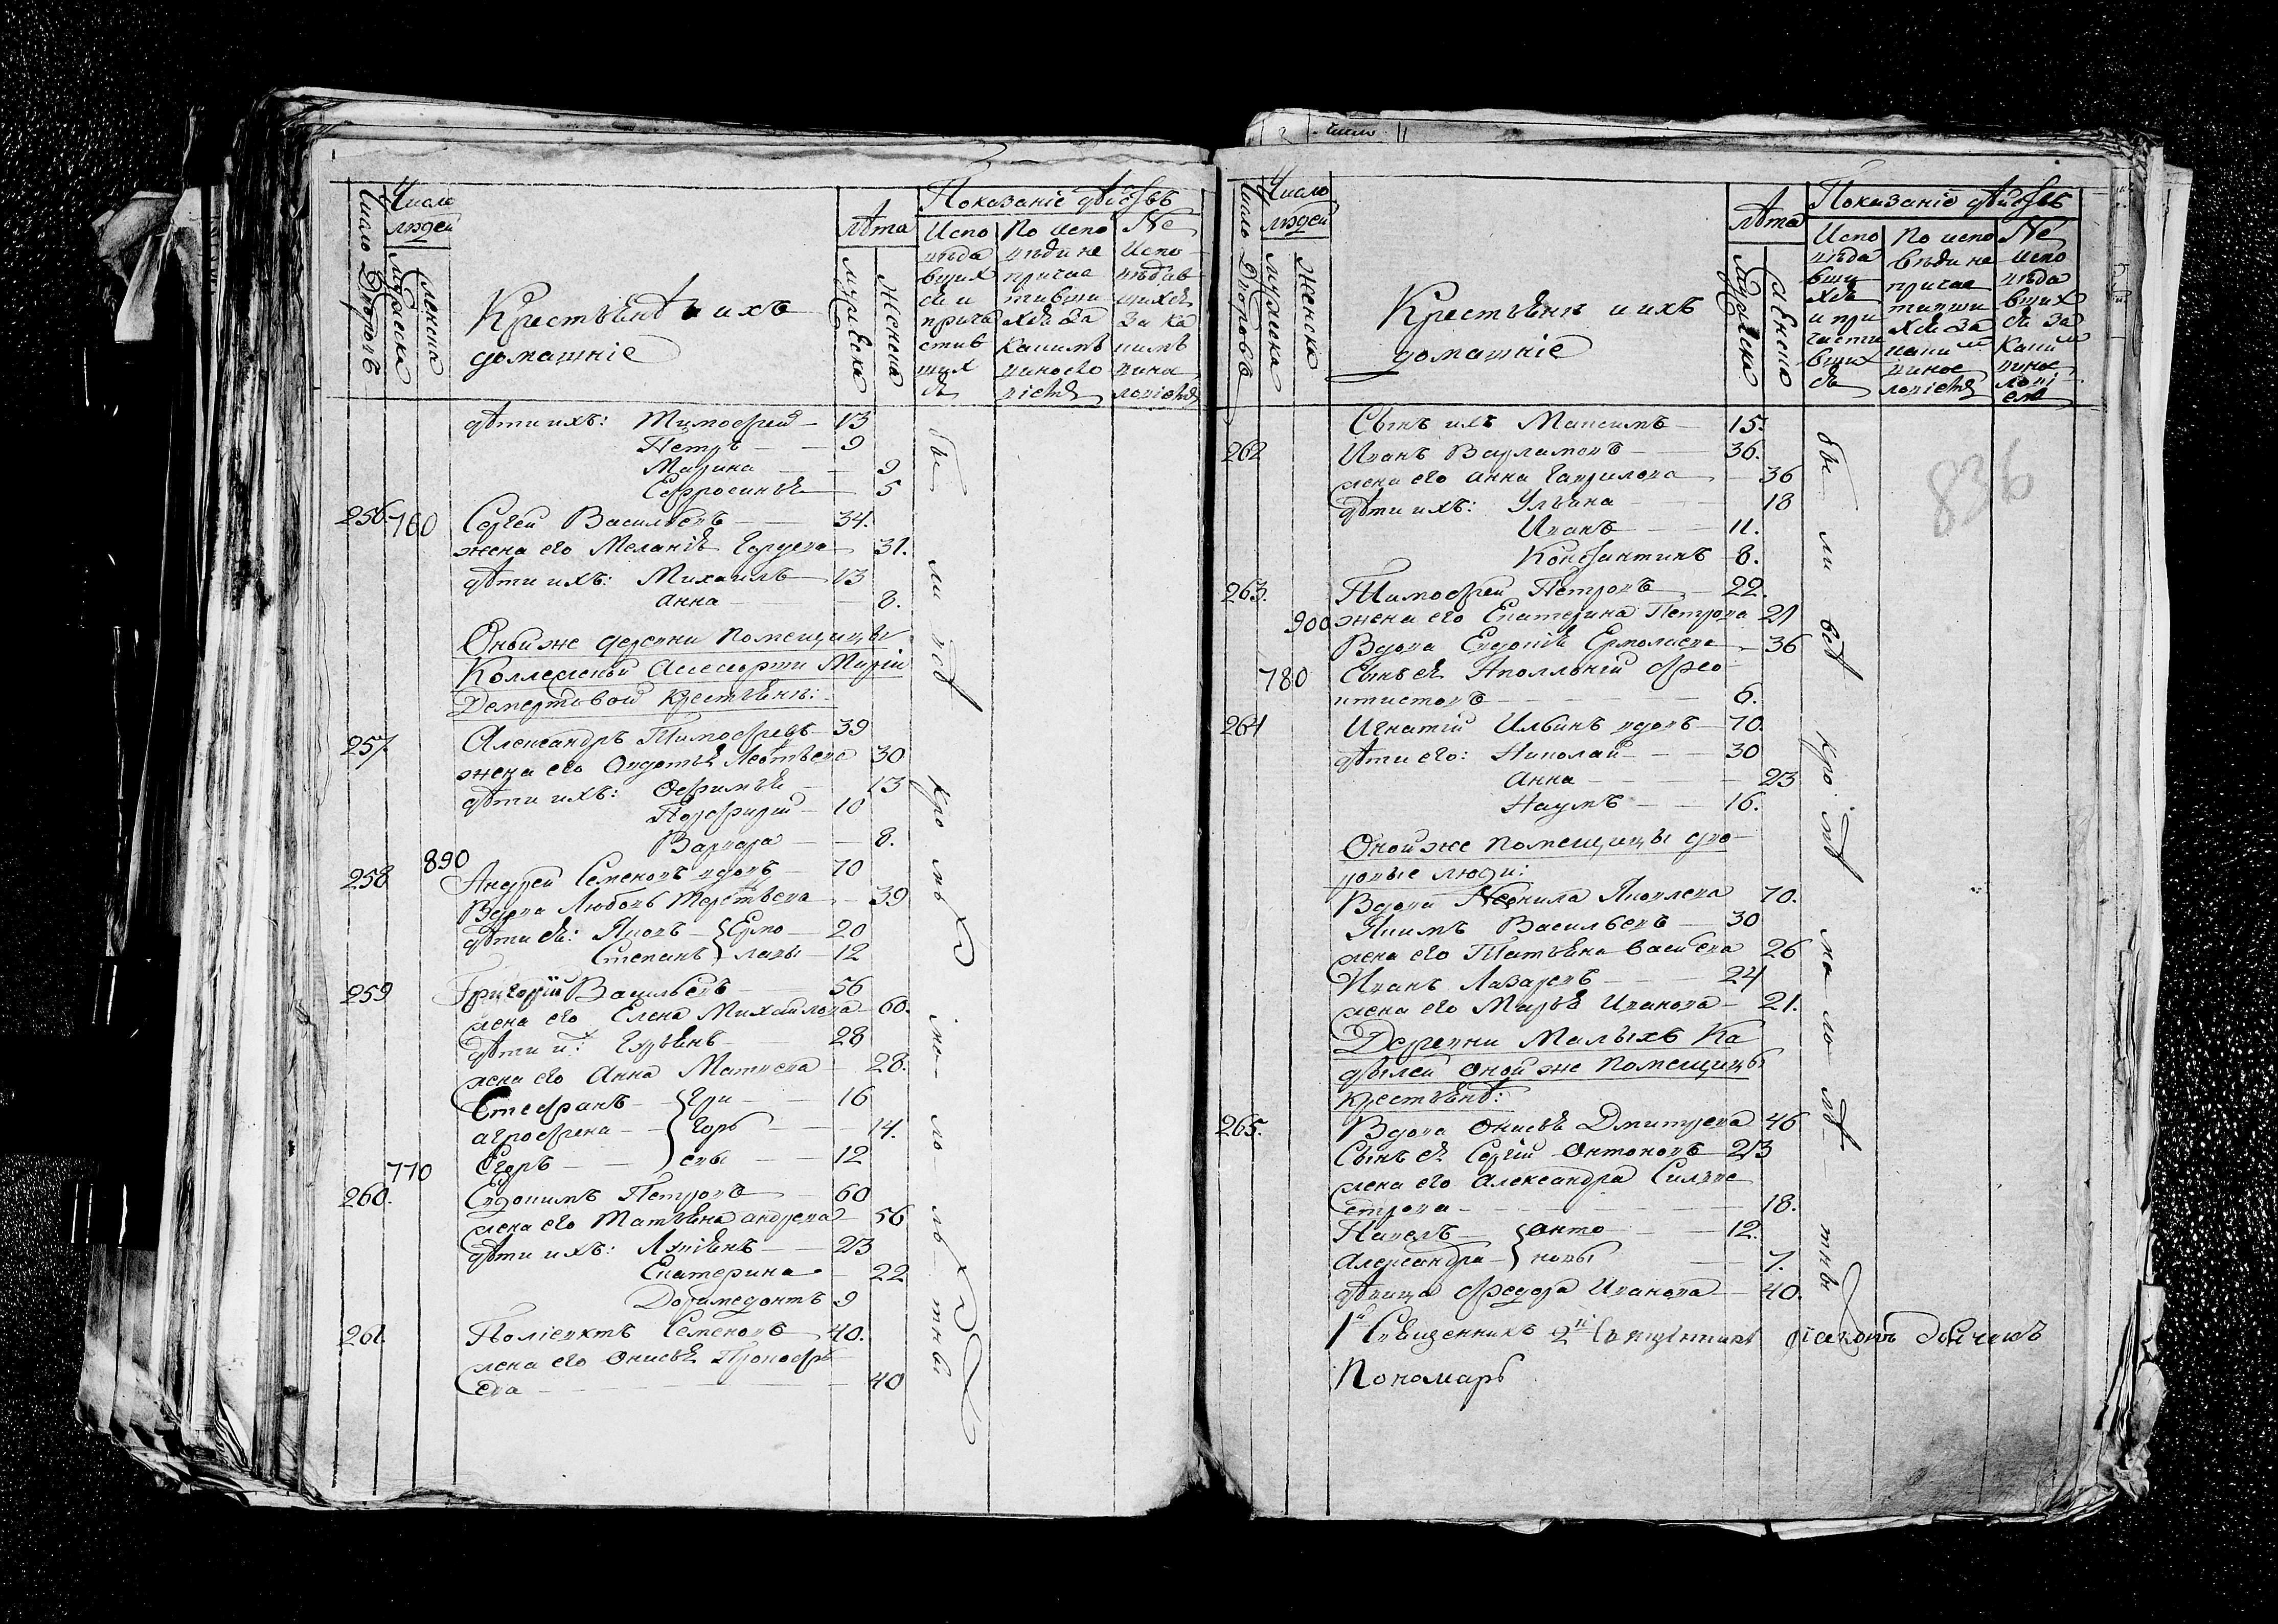 Число Дворовъ
Число людей
мужеска
женска
Крестьянѣ и ихъ
домашніе
лѣта
мужеска
женска
Показаніе дѣйствъ
Исповѣдавшихся и причастившихся
По исповѣди не причастившихся за какимъ виновословіемъ
Не исповѣдавшихся за какимъ виновословіемъ
дѣти ихъ: Тимофей — 13
Петръ — 9
Марина — 9
Ефросинья — 5
256. 760 Сергей Васильевъ — 34.
жена его Меланія Гордеева — 31.
дѣти ихъ: Михаилъ — 13
анна — 8.
Оной же деревни помещицы
Коллежской Асессорши Маріи
Демертовой крестьянѣ:
257. Александръ Тимофеевъ — 39
жена его Авдотья 30
дѣти ихъ: Офимья — 13
Порфирій — 10
Варвара — 8.
258 890 Андрей Семеновъ вдовъ — 70
Вдова Любовь Терентьева — 39
дѣти ея: Яковъ — } Ермо — 20
Степанъ } лаевы — 12
259 Григорій Васильевъ — 56
жена его Елена Михайлова — 60.
дѣти и: — 28
жена его Анна Матвеева — 28.
Стефанъ — } Гри — 16
агрофена — } горь — 14.
770 Егоръ — } евы — 12
260. Евдокимъ Петровъ — 60
жена его Татьяна андреева — 56
дѣти ихъ: — 23
Екатерина — 22
Доримедонтъ 9
261. Поліевктъ Семеновъ — 40.
жена его Онисья Прокофь
ева — 40
бы ли всѣ кро мѣ ма ло лѣ тны
Число Дворовъ
Число людей
мужеска
женска
Крестьянѣ и ихъ
домашніе
лѣта
мужеска
женска
Показаніе дѣйствъ
Исповѣдавшихся и причастившихся
По исповѣди не причастившихся за какимъ виновословіемъ
Не исповѣдавшихся за какимъ виновословіемъ
836
Сынъ ихъ Максимъ — 15.
262 Иванъ Варламовъ — 36.
жена его анна Гаврилова — 36
дѣти ихъ: Ульяна — 18
Иванъ — 11.
Константинъ — 8.
263. Тимофей Петровъ — 22.
900 жена его Екатерина Петрова 21
Вдова Евдокія Ермолаева — 36
780 Сынъ ея Аполлоній Фео
ктистовъ — 6.
264 Игнатій Ильинъ вдовъ — 70.
дѣти его: Николай — 30
Анна — 23
Наумъ — 16.
Оной же помещицы дво
ровые люди:
Вдова Неонила Яковлева 70.
Якимъ Васильевъ — 30
жена его Татьяна Васильева 26
Иванъ Лазаревъ — 24
жена его Марья Иванова — 21.
Деревни Малыхъ Ка
дылей оной же помещицы
крестьянѣ:
265. Вдова Онисья Дмитреева 46
Сынъ ея Сергій Антоновъ — 23
жена его Александра Сильве
строва — 18.
Павелъ — } анто — 12.
Александра — } новы — 7.
дѣвица Федора Иванова — 40.
бы ли всѣ кро мѣ ма ло лѣ тны
1й Священникъ 2й Священникъ діаконъ дьячекъ
Пономарь